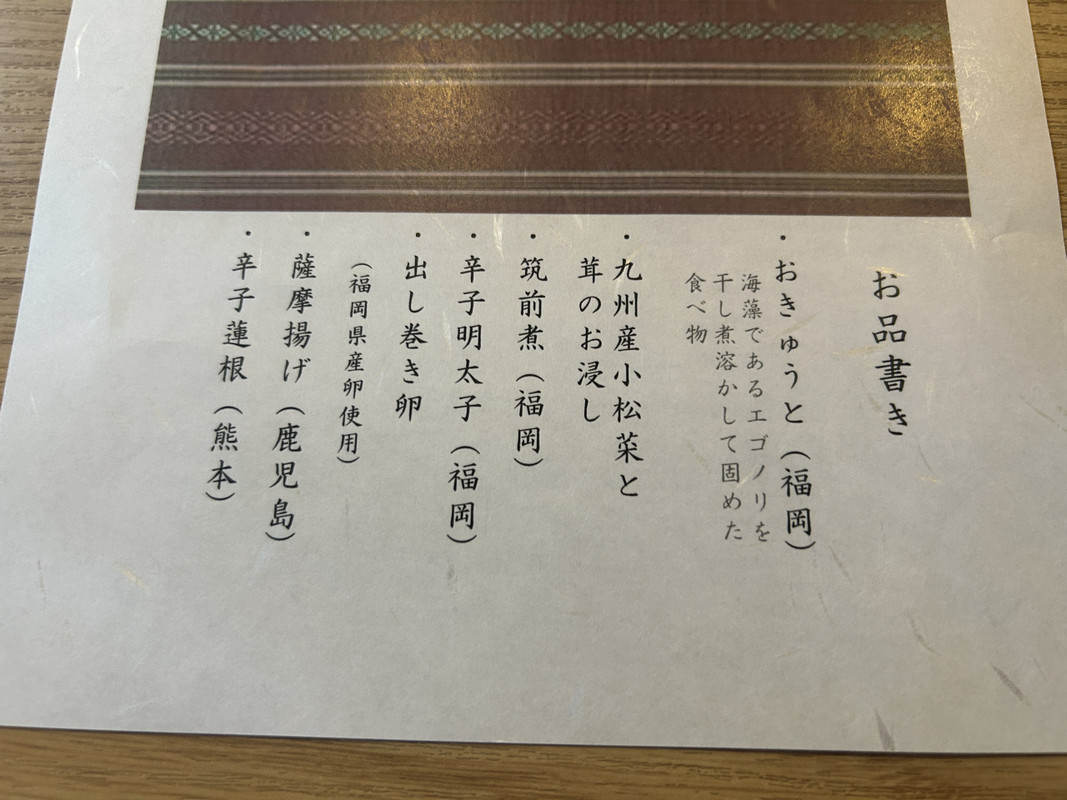 お品書き
・おきゅうと（福岡）
海藻であるエゴノリを
干し煮溶かして固めた
食べ物
・九州産小松菜と
茸のお浸し
・筑前煮（福岡）
・辛子明太子（福岡）
・出し巻き卵
（福岡県産卵使用）
・薩摩揚げ（鹿児島）
・辛子蓮根（熊本）